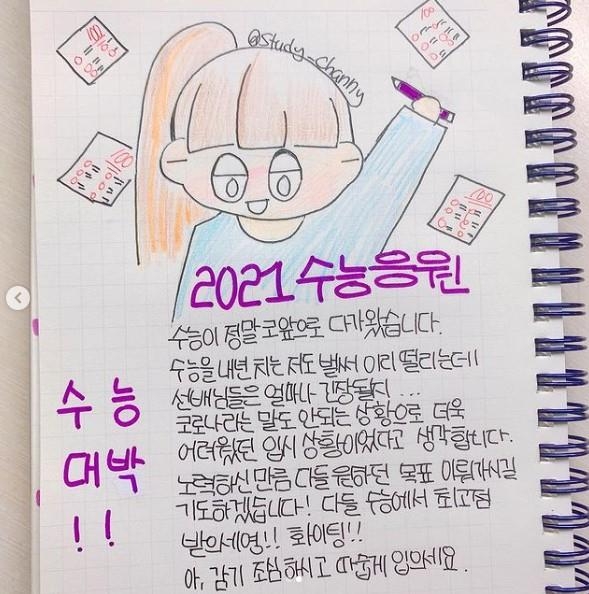 @study_channy
100
100
100
100
2021 수능응원
수능이 정말 코앞으로 다가왔습니다.
수능을 내년 치는 저도 벌써 이리 떨리는데
선배님들은 얼마나 긴장될지 ...
코로나라는 말도 안되는 상황으로 더욱
어려웠던 입시 상황이었다고 생각합니다.
노력하신 만큼 다들 원하던 목표 이뤄가시길
기도하겠습니다! 다들 수능에서 최고점
받으세영!! 화이팅!!
아, 감기 조심하시고 따숩게 입으세요.
수능
대박
!!